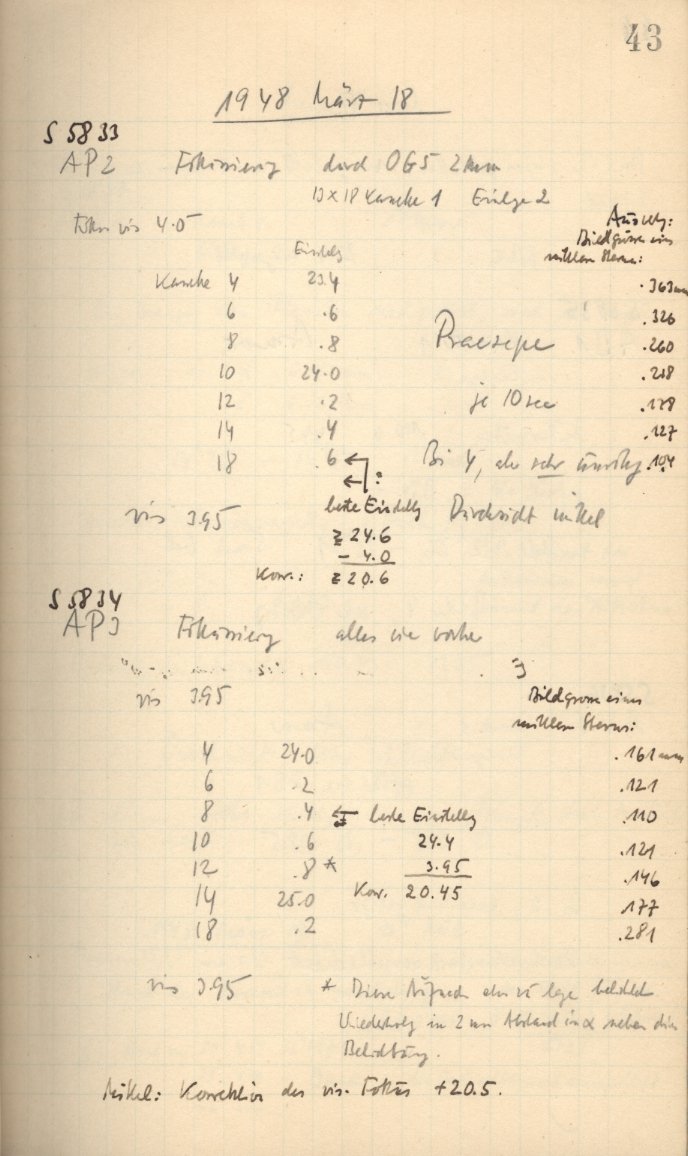 43
1948 März 18
S 5833
AP2 Fokussierung durch OG5 2mm
13x18 Kassette 1 Einlage 2
Fokus vis 4.05
Auswertg:
Bildgrösse eines
mittleren Sterns:
Einstellg
Kassette 4 23.4 .363mm
6 .6 .326
8 .8 Praesepe .260
10 24.0 .218
12 .2 je 10 sec .178
14 .4 .127
18 .6 ← Bi 4, aber sehr unruhig .104
← ?
vis 3.95 beste Einstellg Durchsicht mittel
≥ 24.6
- 4.0
Korr.: ≥ 20.6
S 5834
AP3 Fokussierung alles wie vorher
vis 3.95 Bildgrösse eines
mittleren Sterns:
4 24.0 .161mm
6 .2 .121
8 .4 ← beste Einstellg .110
10 .6 24.4 .121
12 .8 * 3.95 .146
14 25.0 Korr. 20.45 .177
18 .2 .281
vis 3.95 * Diese Aufnahme aber zu lange belichtet
Wiederholg in 2 mm Abstand in α neben dieser
Belichtung.
Mittel: Korrektion des vis. Fokus +20.5.